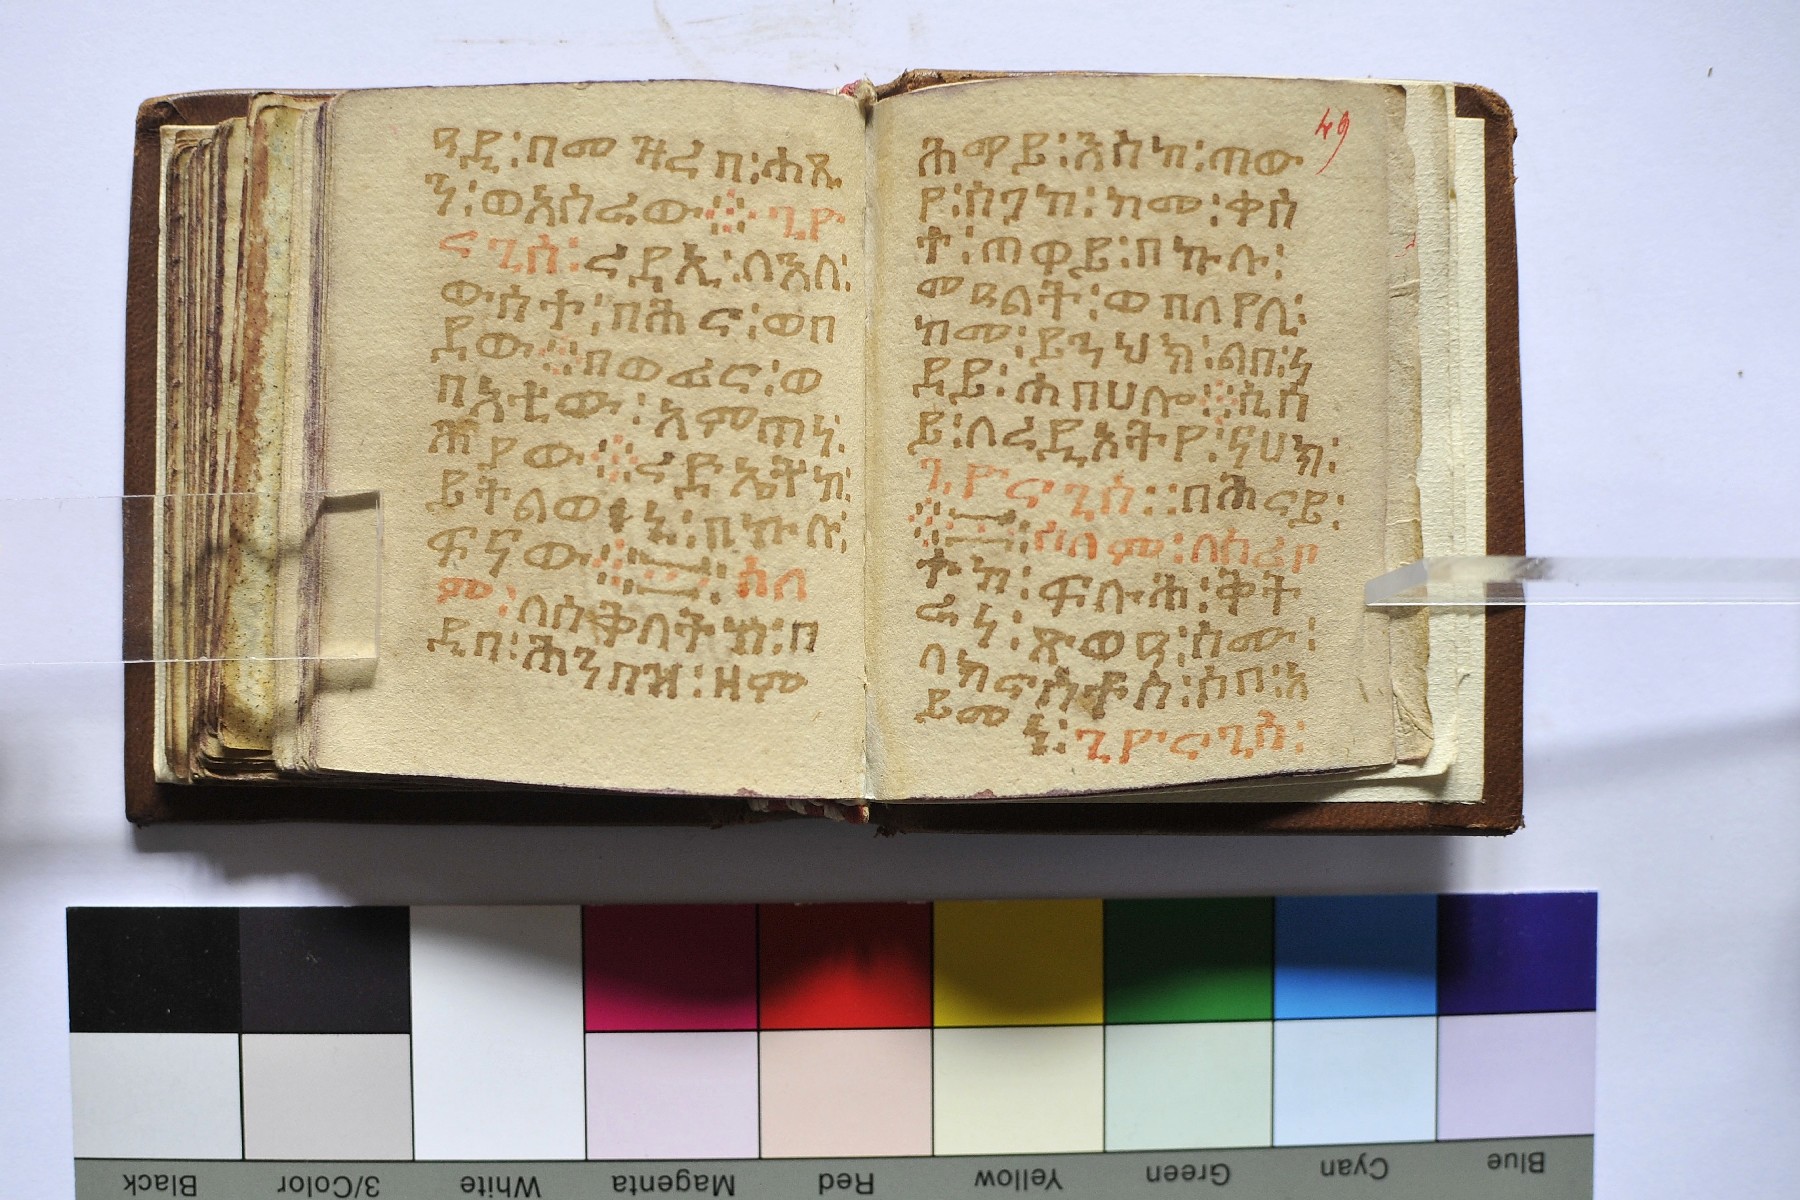 ዓዲ፡በመዝራብ፡ሐጺ
ን፡ወአስራው፨ጊዮ
ርጊስ፡ረዳኢ፡በእለ፡
ውስተ፡በሕር፡ወበ
ደው፨በወፊር፡ወ
በአቲው፡አምጠነ፡
ሕያው፨ረድኤትከ፡
ይትልወኒ፡በኵሉ፡
ፍኖው፨ሰላ
ም፡ለስቅለትከ፡በ
ዲበ፡ሕንብዝ፡ዘም
49
ሕማይ፡እስከ፡ጠው
የ፡ስጋከ፡ከመ፡ቀስ
ተ፡ጠዋይ፡በኵሉ፡
መዓልት፡ወበለያሊ፡
ከመ፡ይንህክ፡ልበ፡ነ
ዳይ፡ሐበሀሎ፨ኪስ
ይ፡ለረዲአትየ፡ኀሀክ፡
ጊዮርጊስ፡፡በሕርይ፡
፨ሰላም፡ለስፊሆ
ቶከ፡ፍሉሕ፡ቅት
ራነ፡ጽዋዓ፡ስሙ፡
ለክርስቶስ፡ሶበ፡አ
ይመኑ፡ጊዮርጊስ፡
Black
3/Color
White
Magenta
Red
Yellow
Green
Cyan
Blue